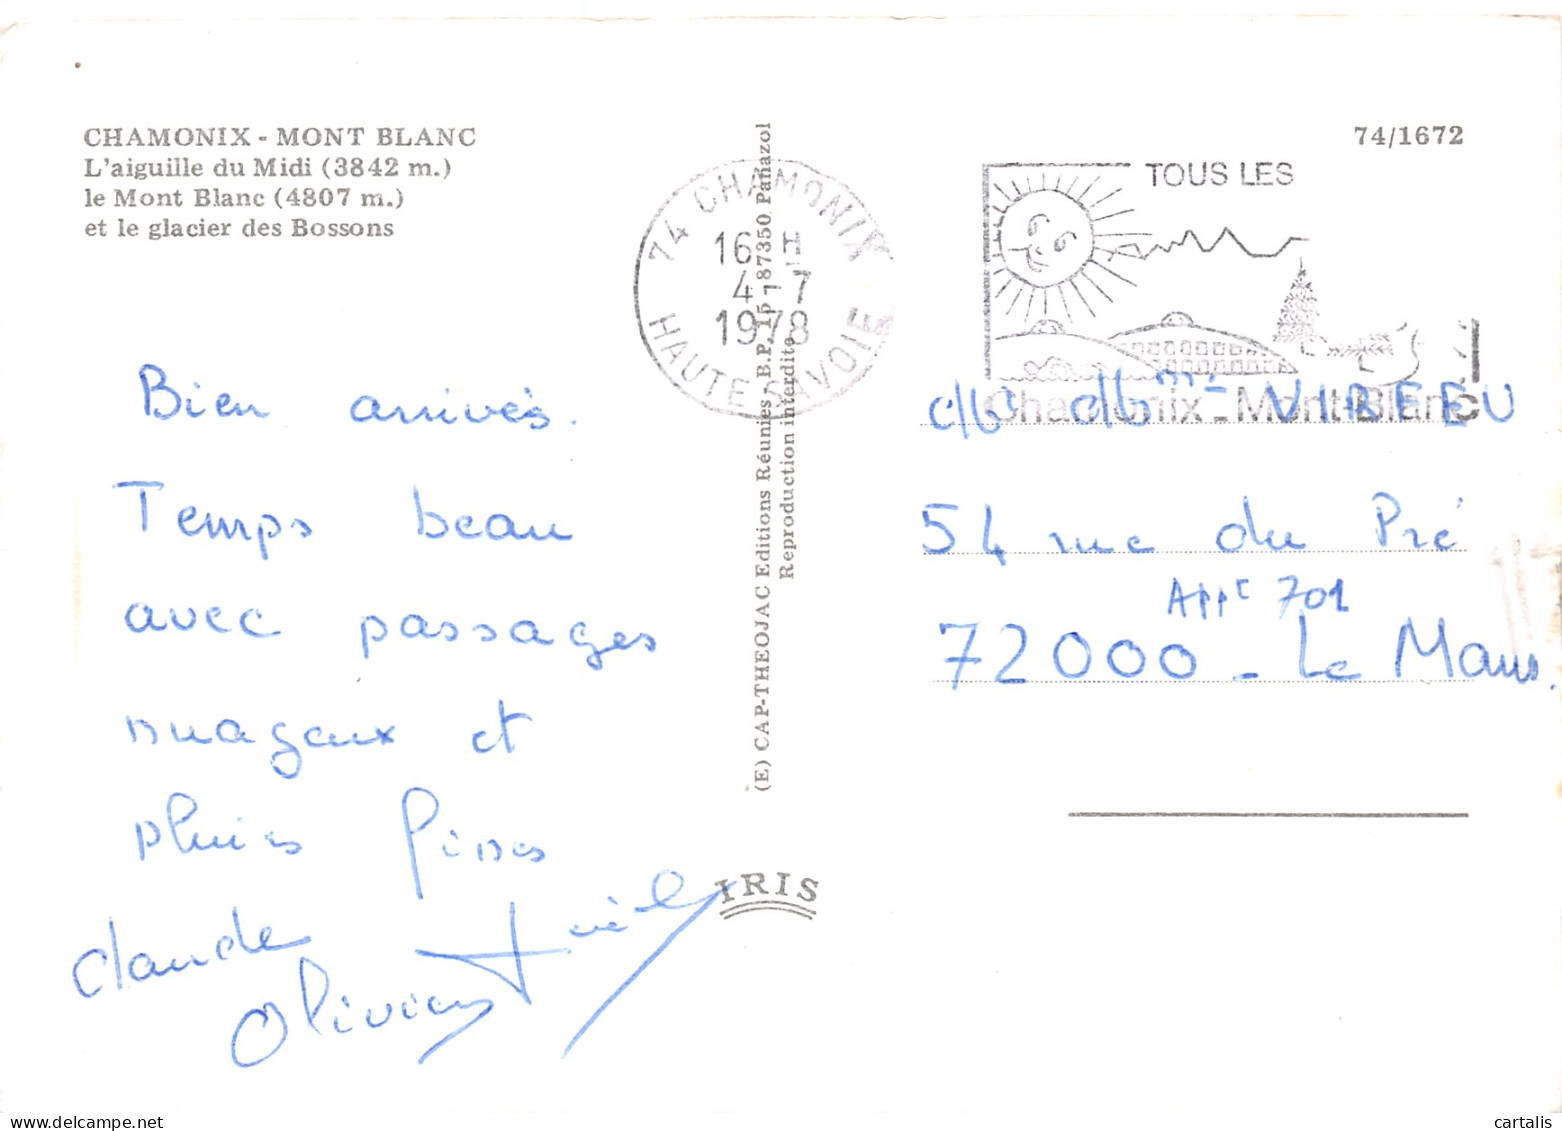 CHAMONIX - MONT BLANC
L'aiguille du Midi (3842 m.)
le Mont Blanc (4807 m.)
et le glacier des Bossons
74/1672
74 CHAMONIX
16 H
4 - 7
1978
HAUTE SAVOIE
TOUS LES
Chamonix - Mont-Blanc
(E) CAP-THEOJAC Editions Réunies - B.P. 15 - 87350 Panazol
Reproduction interdite
IRIS
Bien arrivés.
Temps beau
avec passages
nuageux et
pluies fines
Claude
Olivier
VIREEU
54 rue du Pré
Appt 701
72000 - Le Mans.
www.delcampe.net
cartalis